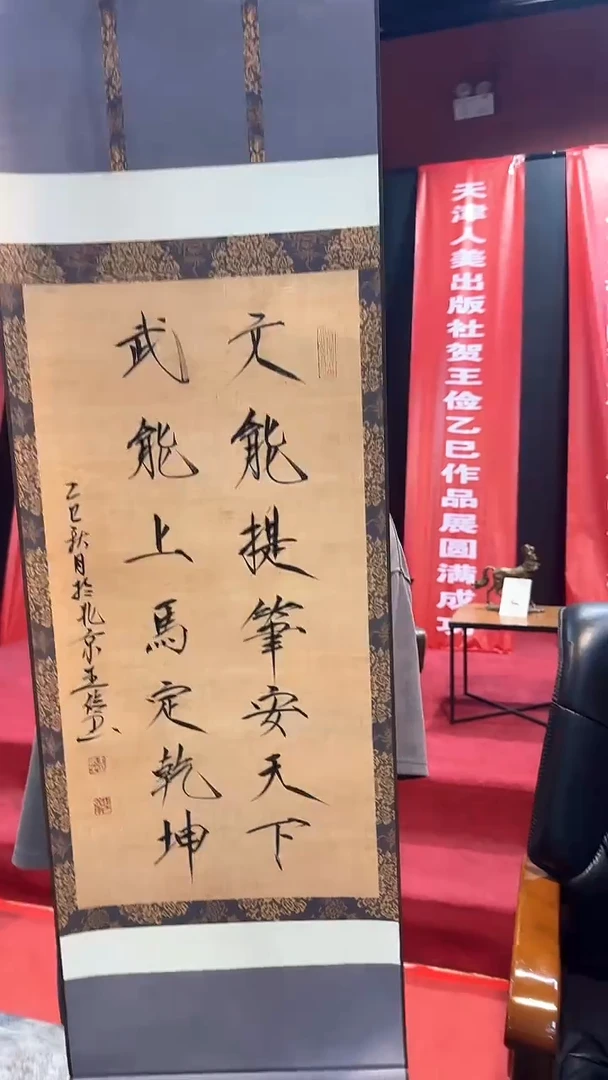 文能提筆安天下
武能上馬定乾坤
乙巳秋月於北京王俭书
天津人美出版社贺王俭乙巳作品展圆满成功